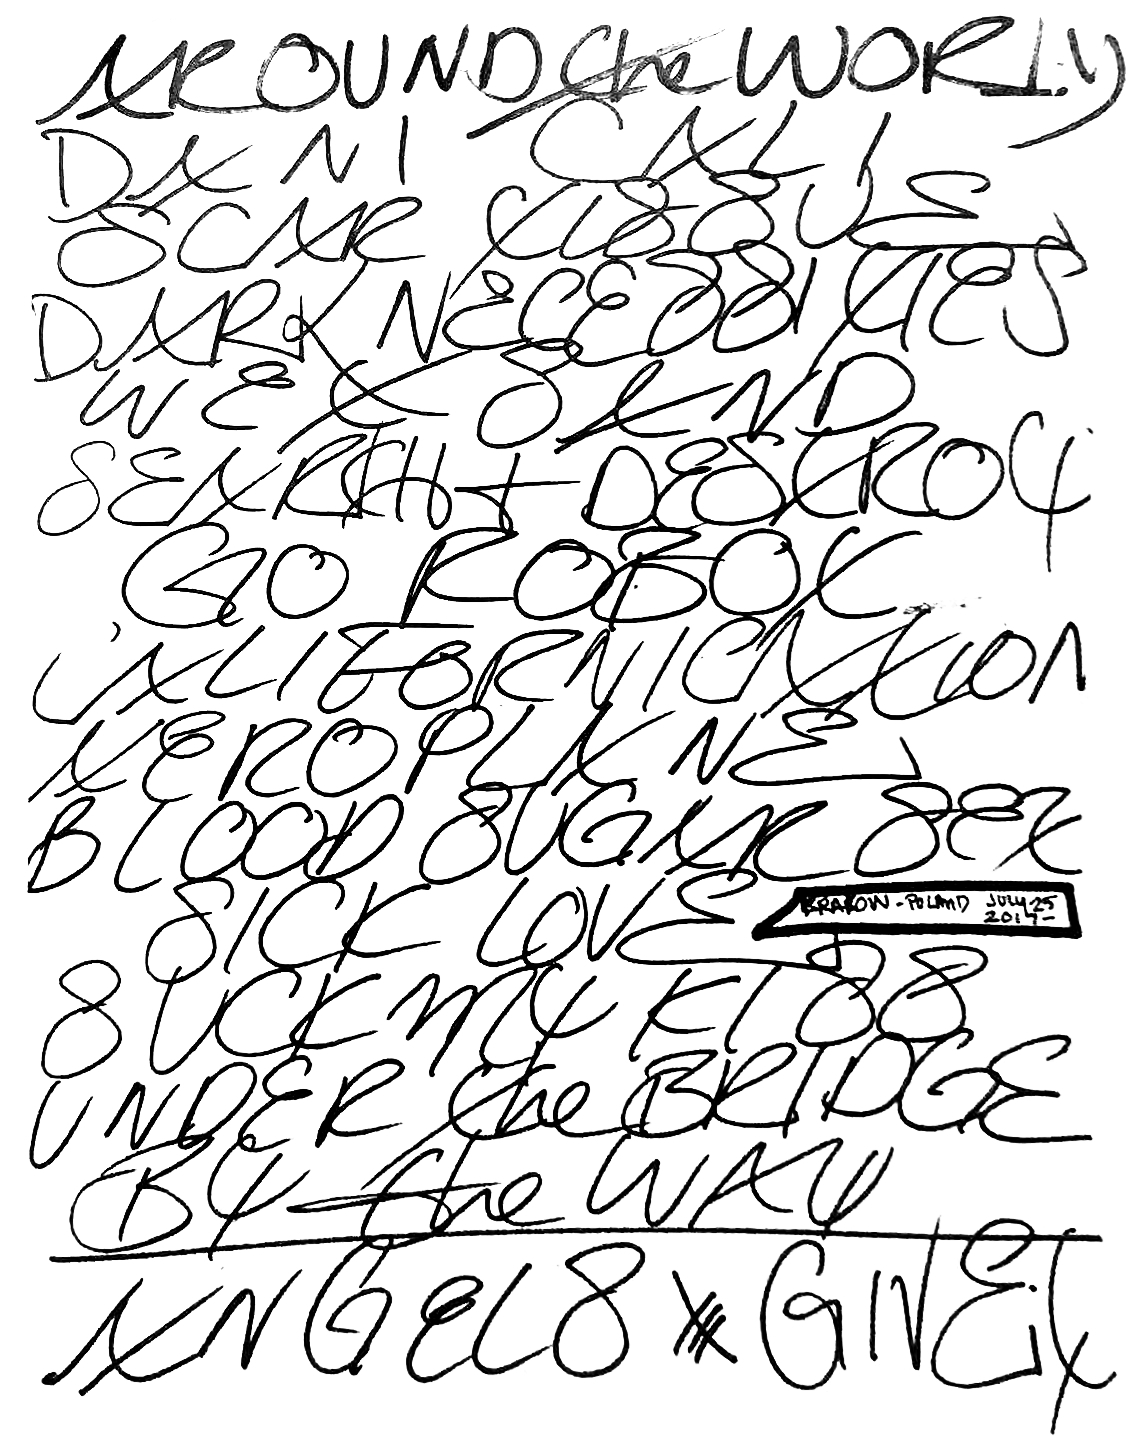 AROUND the WORLD
DANI CALI
SCAR TISSUE
DARK NECESSITIES
WET SAND
SEARCH + DESTROY
GO ROBOT
CALIFORNICATION
AEROPLANE
BLOOD SUGAR SEX
SICK LOVE
KRAKOW - POLAND JULY 25
2017-
SUCK MY KISS
UNDER the BRIDGE
BY the WAY
ANGELS GIVE it